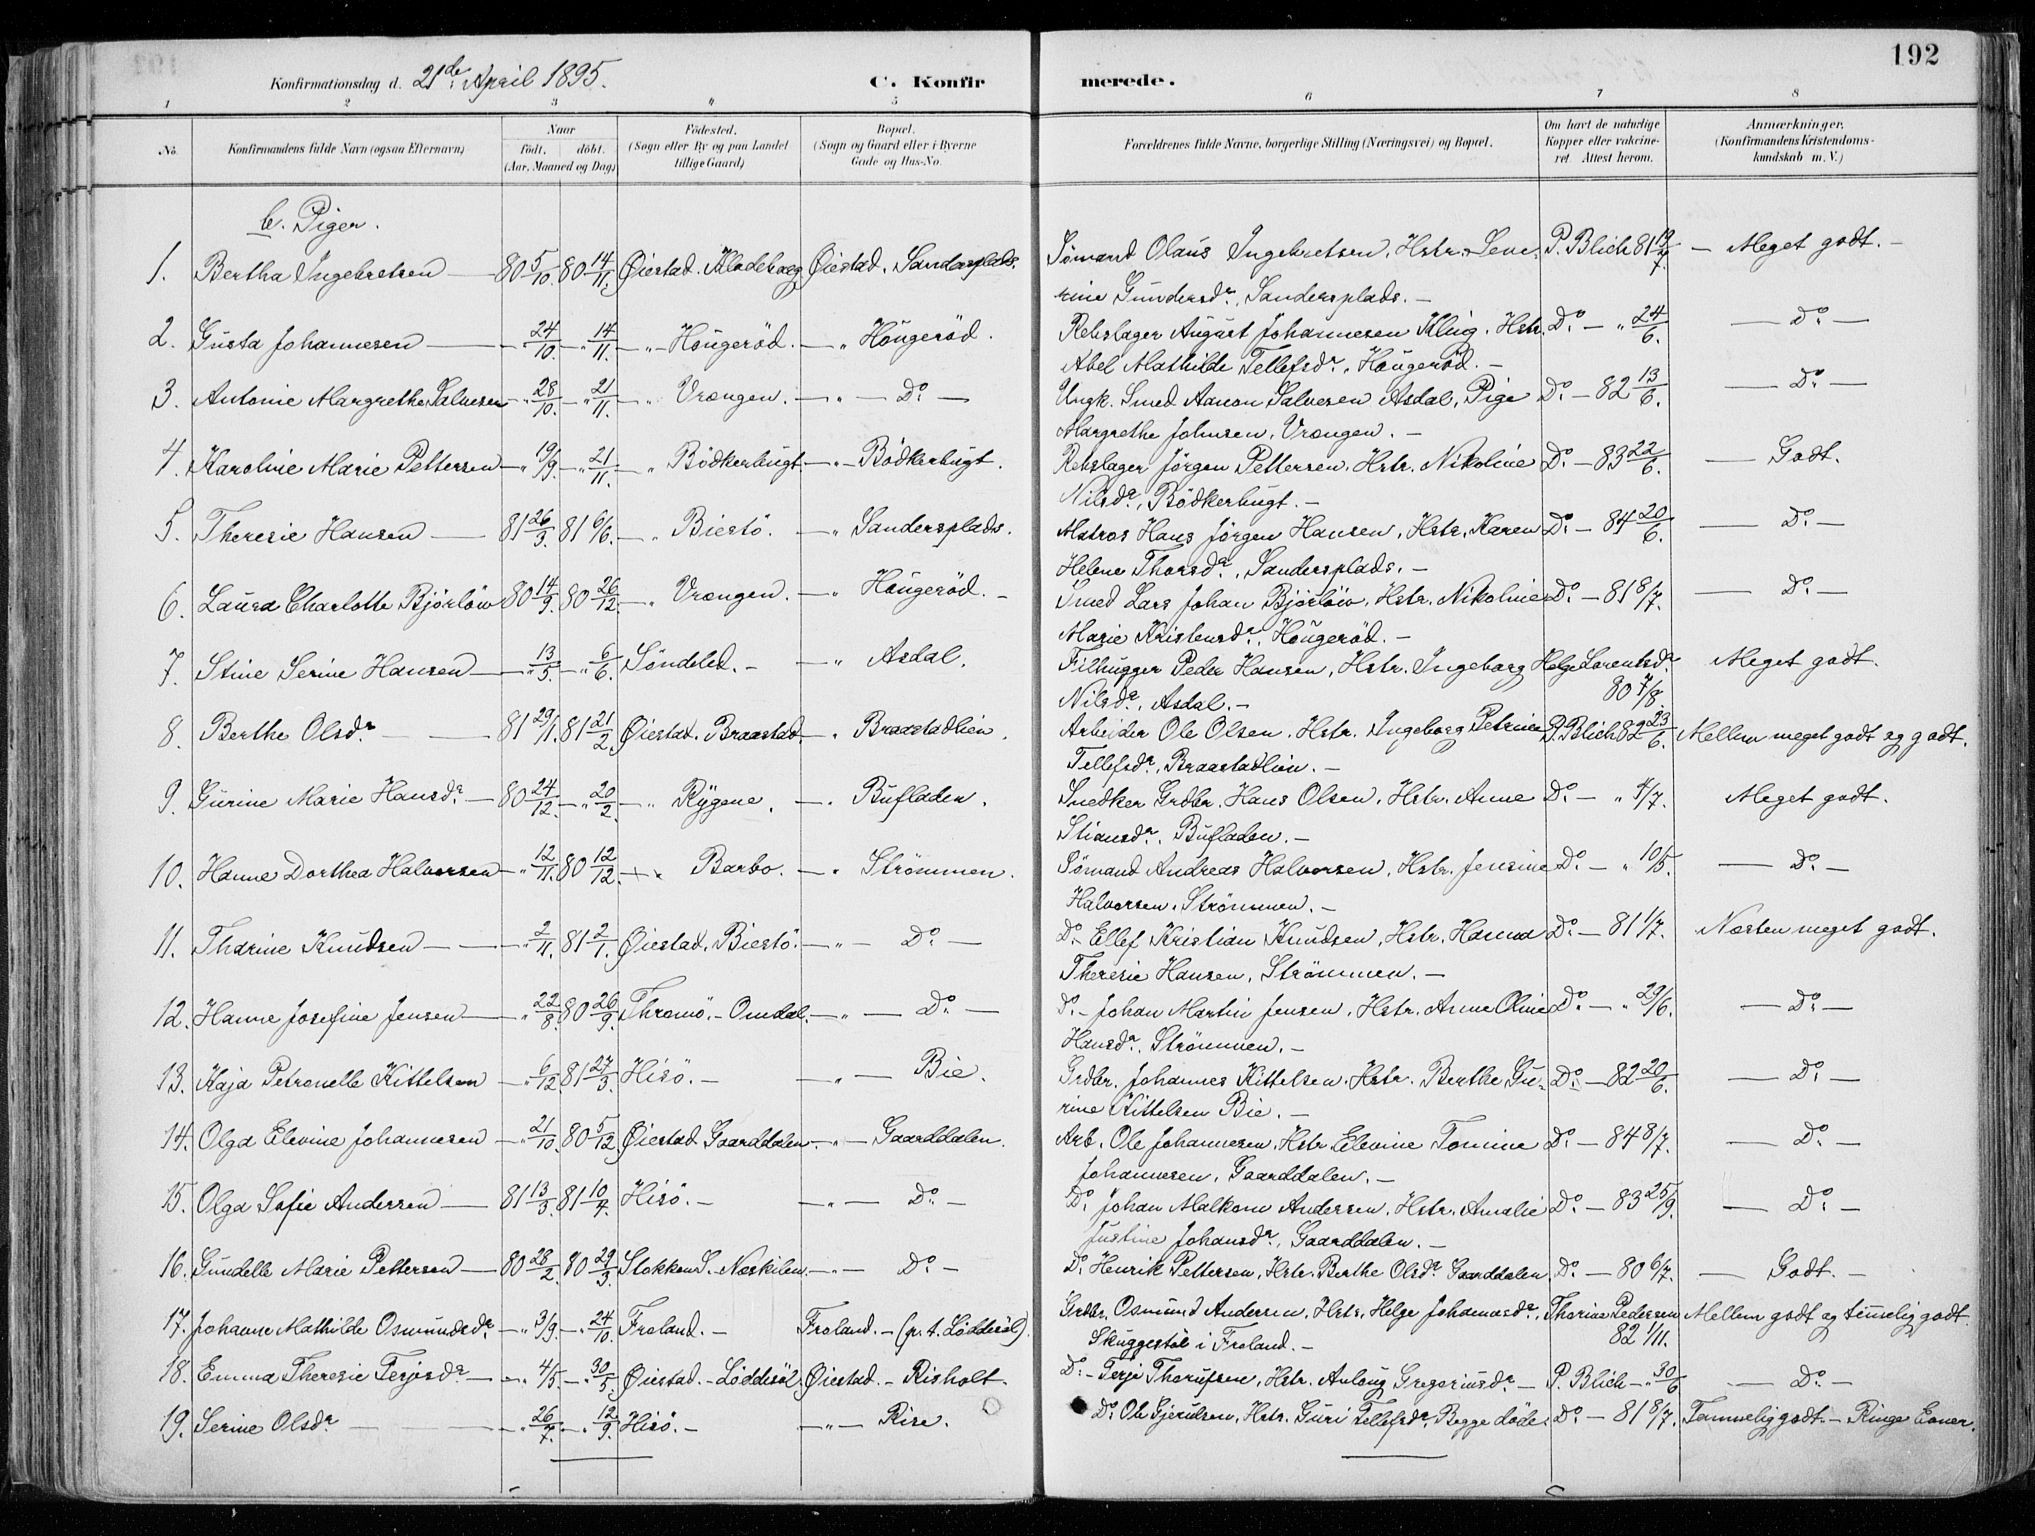 192
Konfirmationsdag d. 21de April 1895. C. Konfirmerede.
1 2 3 4 5 6 7 8
No. Konfirmandens fulde Navn (ogsaa Efternavn) Naar født. døbt. (Aar, Maaned og Dag) Fødested. (Sogn eller By og paa Landet tillige Gaard) Bopæl. (Sogn og Gaard eller i Byerne Gade og Hus-No. Forældrenes fulde Navne, borgerlige Stilling (Næringsvei) og Bopæl. Om havt de naturlige Kopper eller vakcineret. Attest herom. Anmærkninger. (Konfirmandens Kristendomskundskab m. V.)
b. Piger.
1. Bertha Ingebretsen — 80 5/10. 80 14/11. Øiestad. Klodeborg Øiestad. Sandersplads. Sømand Olaus Ingebretsen, Hstr. Seve- P. Blich 81 19/7. — Meget godt. —
rine Gundersdr., Sandersplads. —
2. Gusta Johannesen — " 24/10. — " 14/11. — " Hougerød. — " Hougerød. Rebslager August Johannesen Klug, Hstr. Do. — " 24/6. — Do. —
Abel Mathilde Tellefsdr., Hougerød. —
3. Antonie Margrethe Salvesen — " 28/10. — " 21/11. — " Vrængen. — " — Do. — Ungk. Smed Aanon Salvesen Asdal, Pige Do. — 82 13/6. — Do. —
Margrethe Johnsen, Vrængen. —
4. Karoline Marie Pettersen — " 19/9. — " 21/11. — " Bødkerbugt. — " — Bødkerbugt. Rebslager Jørgen Pettersen, Hstr. Nikoline Do. — 83 22/6. — Godt.
Nilsdr., Bødkerbugt. —
5. Theresie Hansen — 81 26/3. 81 6/6. — " Biestø. — " Sandersplads. Matros Hans Jørgen Hansen, Hstr. Karen Do. — 84 20/6. — Do. —
Helene Thorsdr., Sandersplads. —
6. Laura Charlotte Bjorlów 80 14/9. 80 26/12. — " Vrængen. — " Hougerød. — Smed Lars Johan Bjorlów, Hstr. Nikoline Do. — 81 8/7. — Do. —
Marie Kristensdr., Hougerød. —
7. Stine Serine Hansen — " 13/5. — " 6/6. Søndeled. — — " Asdal. Filhugger Peder Hansen, Hstr. Ingeborg Helge Lorentsdr. Meget godt.
Nilsdr., Asdal. — 80 7/8
8. Berthe Olsdr. — 81 29/1. 81 21/2. Øiestad. Braastad. — " Braastadlien. Arbeider Ole Olsen, Hstr. Ingeborg Petrine P. Blich 82 23/6. Mellem meget godt og godt.
Tellefsdr., Braastadlien. —
9. Gurine Marie Hansdr. — 80 24/12. — " 20/2. — " Rygene. — " Bufladen. Snedker Grdbr. Hans Olsen, Hstr. Anne Do. — " 4/7. Meget godt.
Stiansdr., Bufladen. —
10. Hanne Dorthea Halvorsen — " 12/11. 80 12/12. — " Barbo. — " Strømmen. Sømand Andreas Halvorsen, Hstr. Jensine Do. — " 10/5. — Do. —
Halvorsen, Strømmen. —
11. Tharine Knudsen — " 2/11. 81 2/1. Øiestad. Biestø. — " — Do. — Do. Ellef Kristian Knudsen, Hstr. Hanna Do. — 81 1/7. Næsten meget godt.
Theresie Hansen, Strømmen. —
12. Hanne Josefine Jensen — " 22/8. 80 26/9. Thromø. — Omdal. — " — Do. — Do. — Johan Martin Jensen, Hstr. Anne Oline Do. — " 29/6. — Do. —
Hansdr., Strømmen. —
13. Kaja Petronelle Kittelsen — " 6/12 81 27/3. Hisø. — — " — Bie. Grdbr. Johannes Kittelsen, Hstr. Berthe Gu- Do. — 82 20/6. — Do. —
rine Kittelsen Bie. —
14. Olga Elevine Johannesen — " 21/10. 80 5/12. Øiestad Gaarddalen. — " — Gaarddalen. Arb. Ole Johannesen, Hstr. Elevine Tomine Do. — 84 8/7. — Do. —
Johannesen, Gaarddalen. —
15. Olga Sofie Andersen — 81 13/3. 81 10/4. Hisø. — — " — Do. — Do. Johan Malkom Andersen, Hstr. Amalie Do. — 83 25/9. — Do. —
Justine Johansdr., Gaarddalen. —
16. Gundelle Marie Pettersen — 80 28/2. 80 29/3. Stokken S. Neskilen. — " — Do. — Do. Henrik Pettersen, Hstr. Berthe Olsdr. Gaarddalen. Do. — 80 6/7. — Godt. —
17. Johanne Mathilde Osmundsdr. — " 3/9. — " 24/10. Froland. — Froland. — (p. t. Løddesøl). Grdbr. Osmund Andersen, Hstr. Helge Johannesdr., Thorine Pedersen Mellem godt og temmelig godt.
Skuggestøl i Froland. — 82 1/11.
18. Emma Theresie Terjesdr. — " 4/5. — " 30/5. Øiestad. — Løddesøl. Øiestad. — Risholt. Do. — Terje Thorufsen, Hstr. Aslaug Gregoriusdr. — P. Blich — " 30/6 — Do. —
19. Serine Olsdr. — " 26/7. — " 12/9. Hisø. — — " — Rise. Do. Ole Gjerulsen, Hstr. Guri Tellefsdr. Begge døde. Do. — 81 8/7. Temmelig godt. — Ringe Evner.